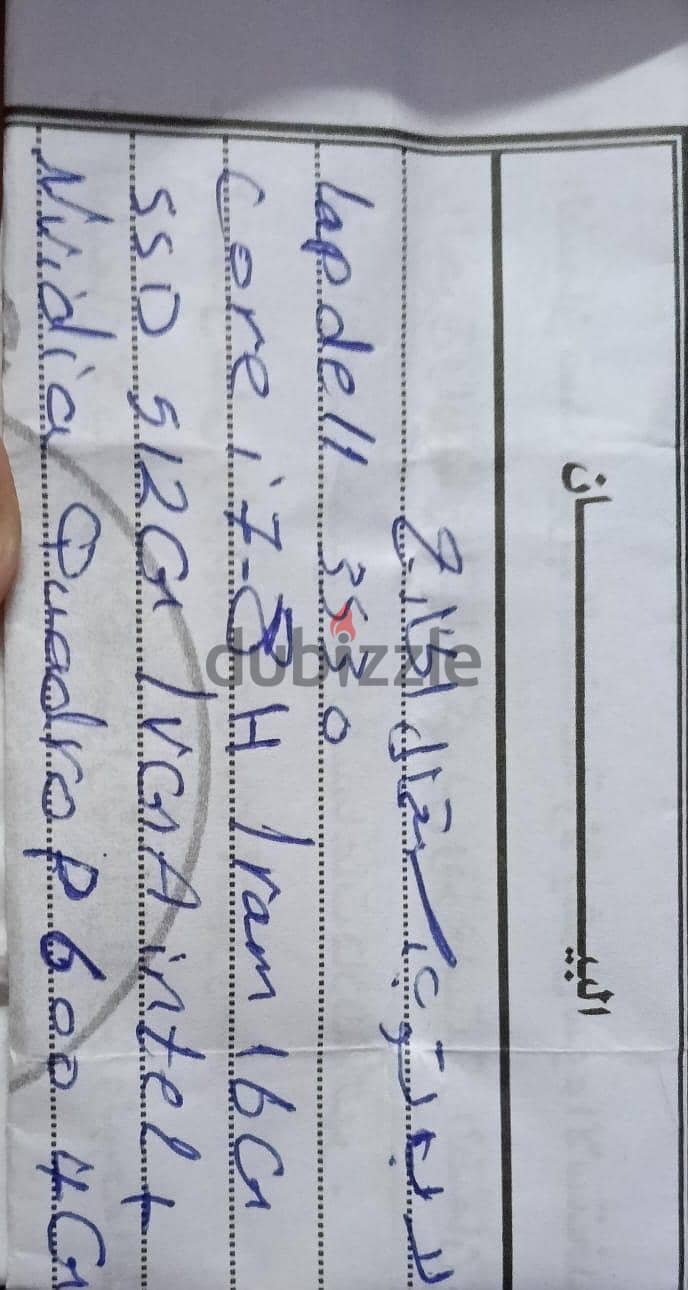 البيــــــان
لاب توب استعمال الخارج
lap dell 3530
Core i7-8 H / ram 16G
SSD 512G / VGA intel +
Nvidia Quadro P600 4G
dubizzle